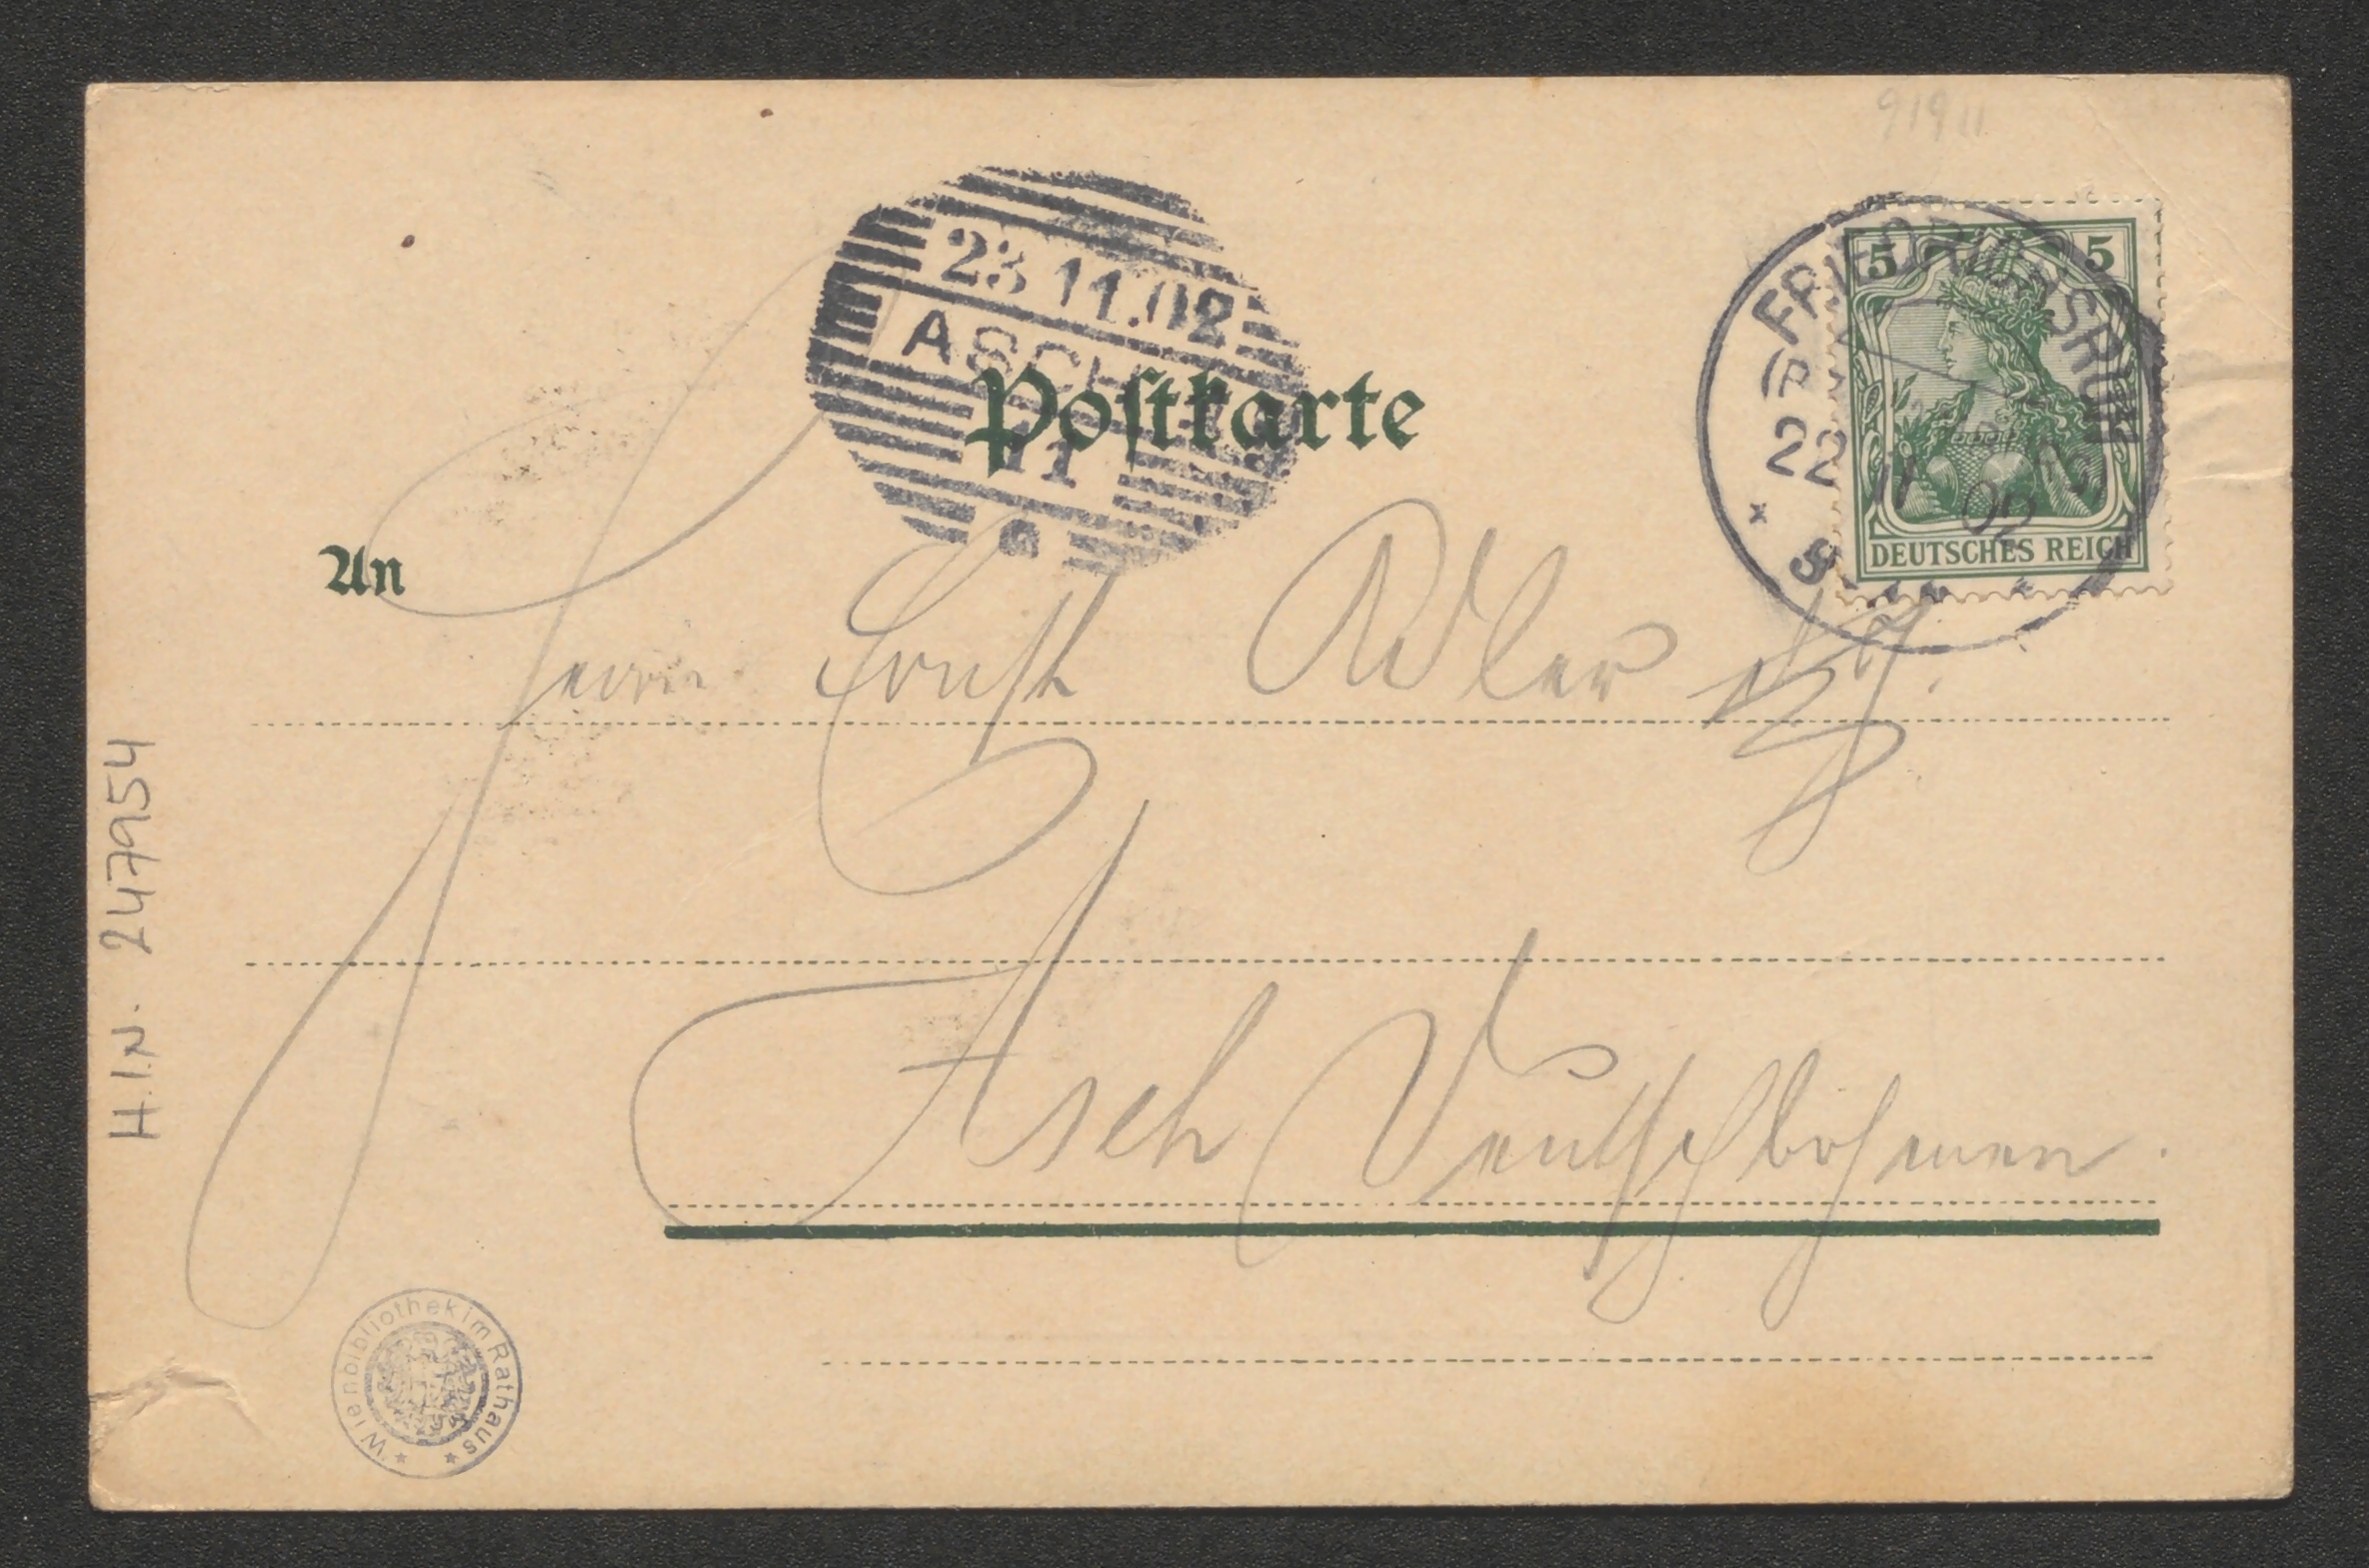 91911
23 11.02
ASCH
11
a
Postkarte
An
FRIEDRICHSRUH
22 11 02
5 5
DEUTSCHES REICH
Herrn Ernst Adler
Asch Deutschböhmen.
H.I.N. 247954
Wienbibliothek im Rathaus